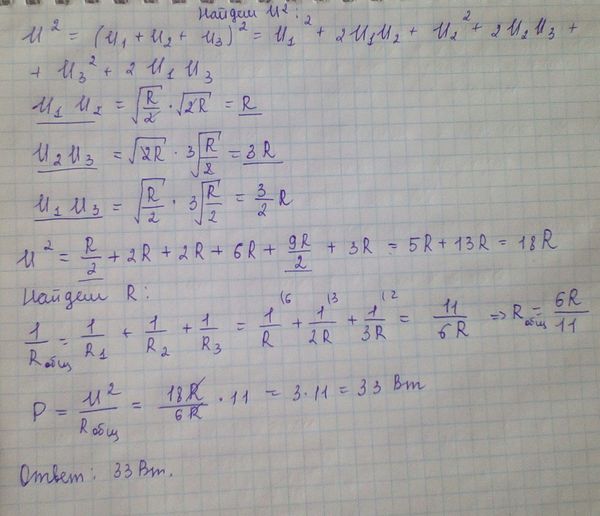 Найдем U²:
U² = (U₁ + U₂ + U₃)² = U₁² + 2U₁U₂ + U₂² + 2U₂U₃ +
+ U₃² + 2 U₁ U₃
U₁ U₂ = √(R/2) · √(2R) = R
U₂U₃ = √(2R) · 3√(R/2) = 3R
U₁ U₃ = √(R/2) · 3√(R/2) = 3/2 R
U² = R/2 + 2R + 2R + 6R + 9R/2 + 3R = 5R + 13R = 18R
Найдем R:
1/Rобщ = 1/R₁ + 1/R₂ + 1/R₃ = 1/R (6 + 1/2R (3 + 1/3R (2 = 11/6R => Rобщ = 6R/11
P = U²/Rобщ = 18R/6R · 11 = 3·11 = 33 Вт
Ответ: 33Вт.